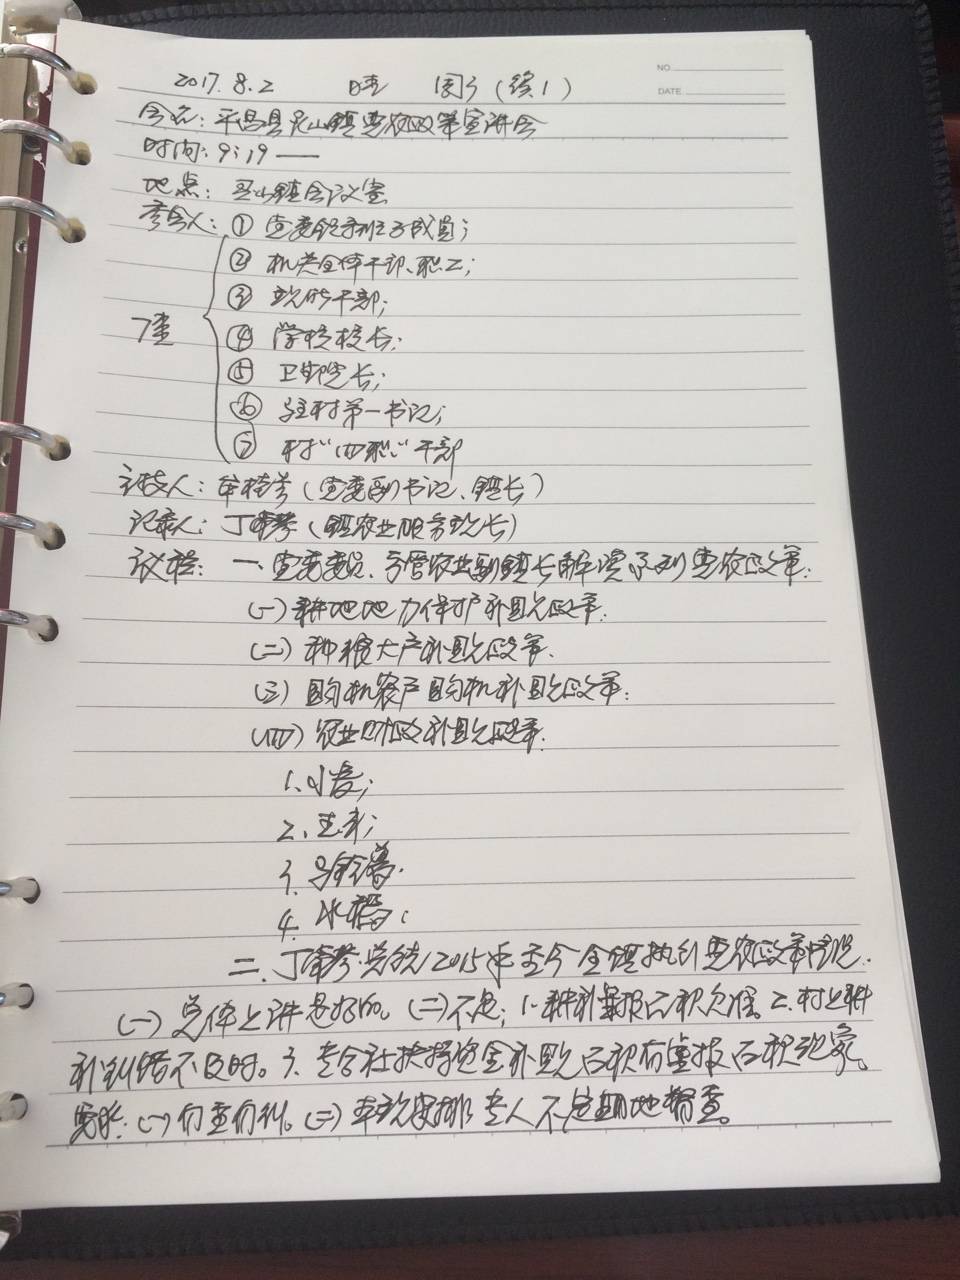 2017.8.2 晴 周三(续1)
NO.
DATE
会名:平昌县灵山镇惠农政策宣讲会
时间:9:19——
地点:灵山镇会议室
参会人:①党委领导班子成员;
②机关全体干部、职工;
③站所干部;
7类
④学校校长;
⑤卫生院长;
⑥驻村第一书记;
⑦村“四职”干部
主持人:(党委副书记、镇长)
记录人:丁(镇农业服务站长)
议程:一、党委委员、分管农业副镇长解读系列惠农政策:
(一)耕地地力保护补贴政策.
(二)种粮大户补贴政策.
(三)购机农户购机补贴政策.
(四)农业财政补贴政策.
1.小麦;
2.玉米;
3.马铃薯.
4.水稻.
二.丁总结2015年至今全镇执行惠农政策情况.
(一)总体上讲是好的。(二)不足:1.耕补量报面积欠准。2.村上耕
补纠错不及时。3.专合社扶持资金补贴面积有重报面积现象。
要求:(一)自查自纠。(二)本站安排专人不定期地督查。